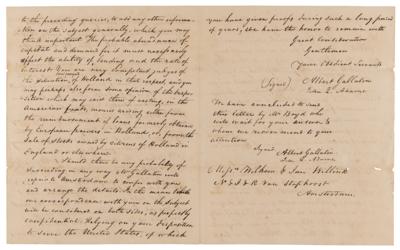 to the preceding queries, to add any other informa-
tion on the subject generally, which you may
think important. The probable abundance of
capital and demand for it must necessarily
affect the ability of lending and the rate of
interest. You are very competent judges of
the situation of Holland in that respect, and you
may perhaps also form some opinion of the
sition which may exist there of vesting, in the
American funds, monies arising either from
the reimbursement of loans formerly obtained
by European powers in Holland, or, from the
sale of Stocks owned by citizens of Holland in
England or elsewhere.
Should there be any probability of
succeeding in any way Mr Gallatin will
repair to Amsterdam to confer with you
and arrange the details. In the mean time
our correspondence with you on the subject
will be considered on both sides, as perfectly
confidential. Relying on your disposition
to serve the United States, of which
you have given proofs during such a long period
of years, we have the honor to remain with
Great Consideration
Gentlemen
Your Obedient Servants
(Signed) Albert Gallatin
James A. Bayard
We have concluded to send
this letter by Mr Boyd who
will wait for your answer &
whom we recommend to your
attention
Signed Albert Gallatin
James A. Bayard
Messrs Wilhem & Jan Willink
N & J & R Van Staphorst
Amsterdam